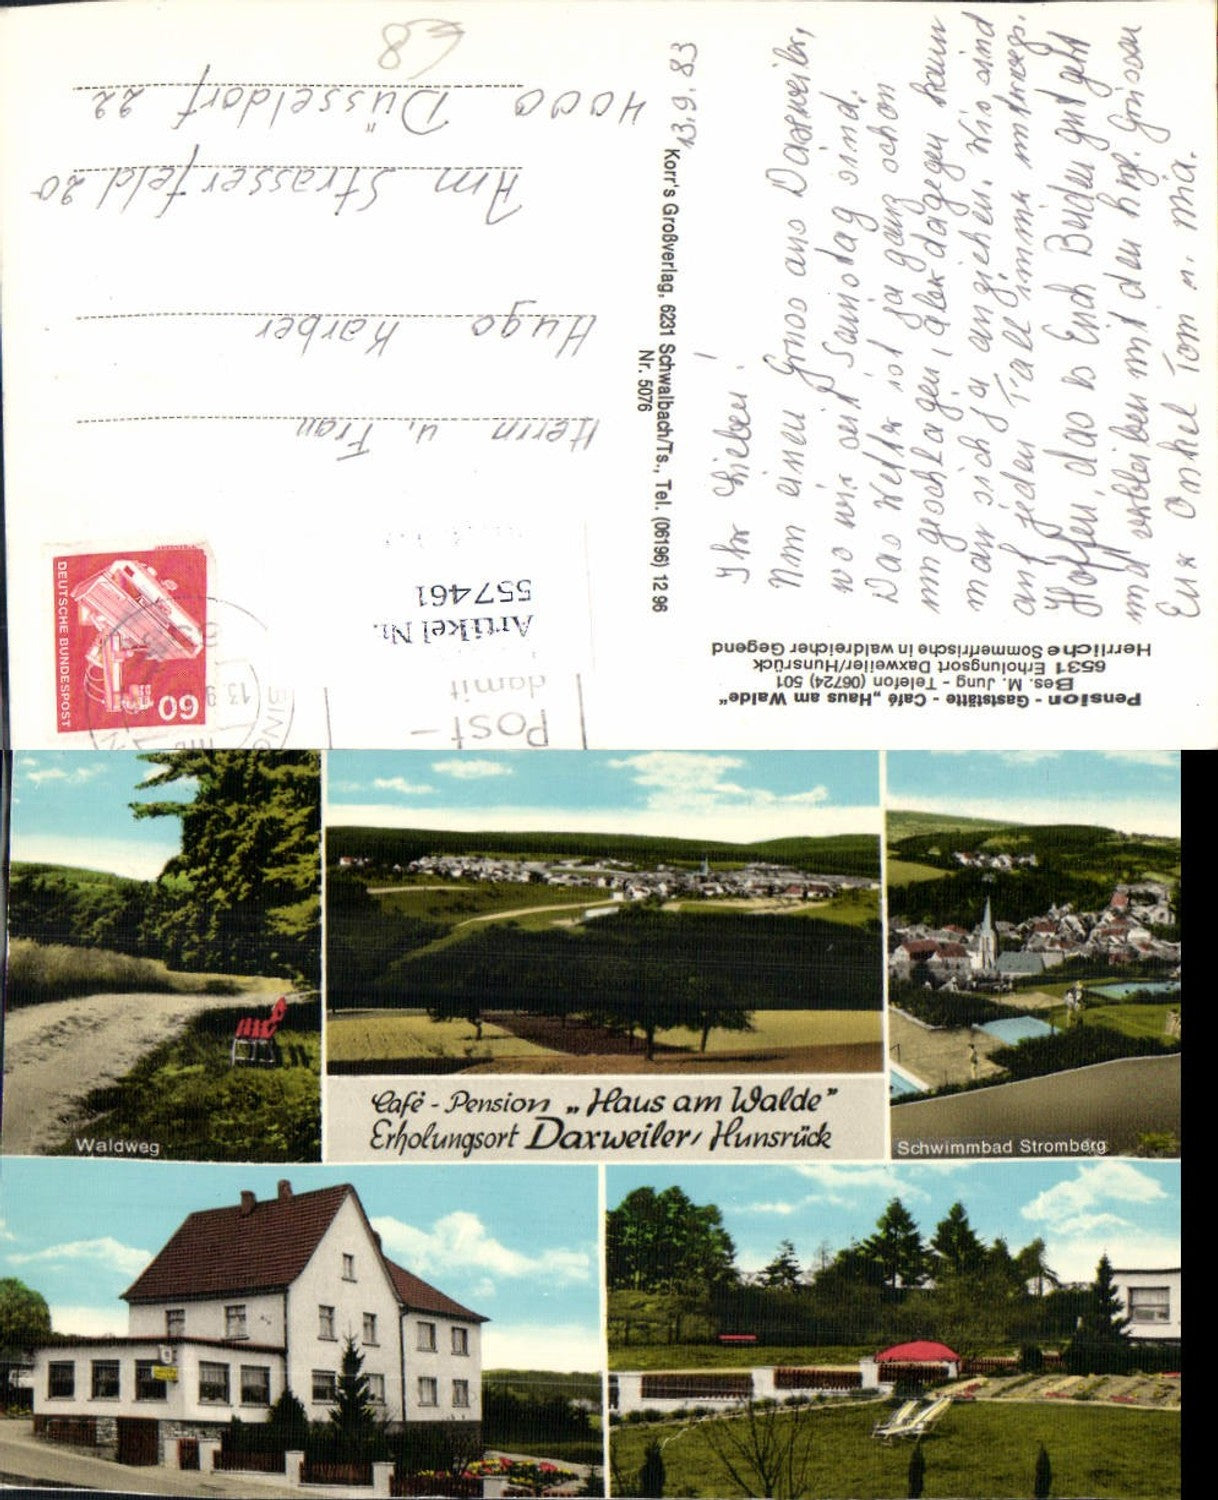 Pension - Gaststätte - Café „Haus am Walde“
Bes. M. Jung - Telefon (06724) 501
6531 Erholungsort Daxweiler/Hunsrück
Herrliche Sommerfrische in waldreicher Gegend
13.9.83
Ihr Lieben!
Nun einen Gruss aus Daxweiler,
wo wir seit Samstag sind.
Das Wetter ist ja ganz schon
umgeschlagen, aber dagegen kann
man sich ja anziehen. Wir sind
auf jeden Fall immer unterwegs.
Hoffen, das es Euch Beiden gut geht
und verbleiben mit den hzg. Grüssen
Eure Onkel Tom u. Mia.
Korr's Großverlag, 6231 Schwalbach/Ts., Tel. (06196) 12 96
Nr. 5076
Post-
damit
DEUTSCHE BUNDESPOST
60
13.9
Artikel Nr.
557461
Herrn u. Frau
Hugo Karber
Am Strasserfeld 20
4000 Düsseldorf 22
€8
Waldweg
Café - Pension „Haus am Walde”
Erholungsort Daxweiler/Hunsrück
Schwimmbad Stromberg